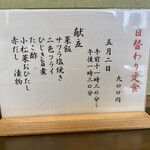 日替わり定食
九〇〇円
五月二日
午前十一時三〇分~
午後一時三〇分
献立
菜飯
サワラ塩焼き
二色フライ
ひじき豆煮
たこ酢
小松菜おひたし
赤だし 漬物